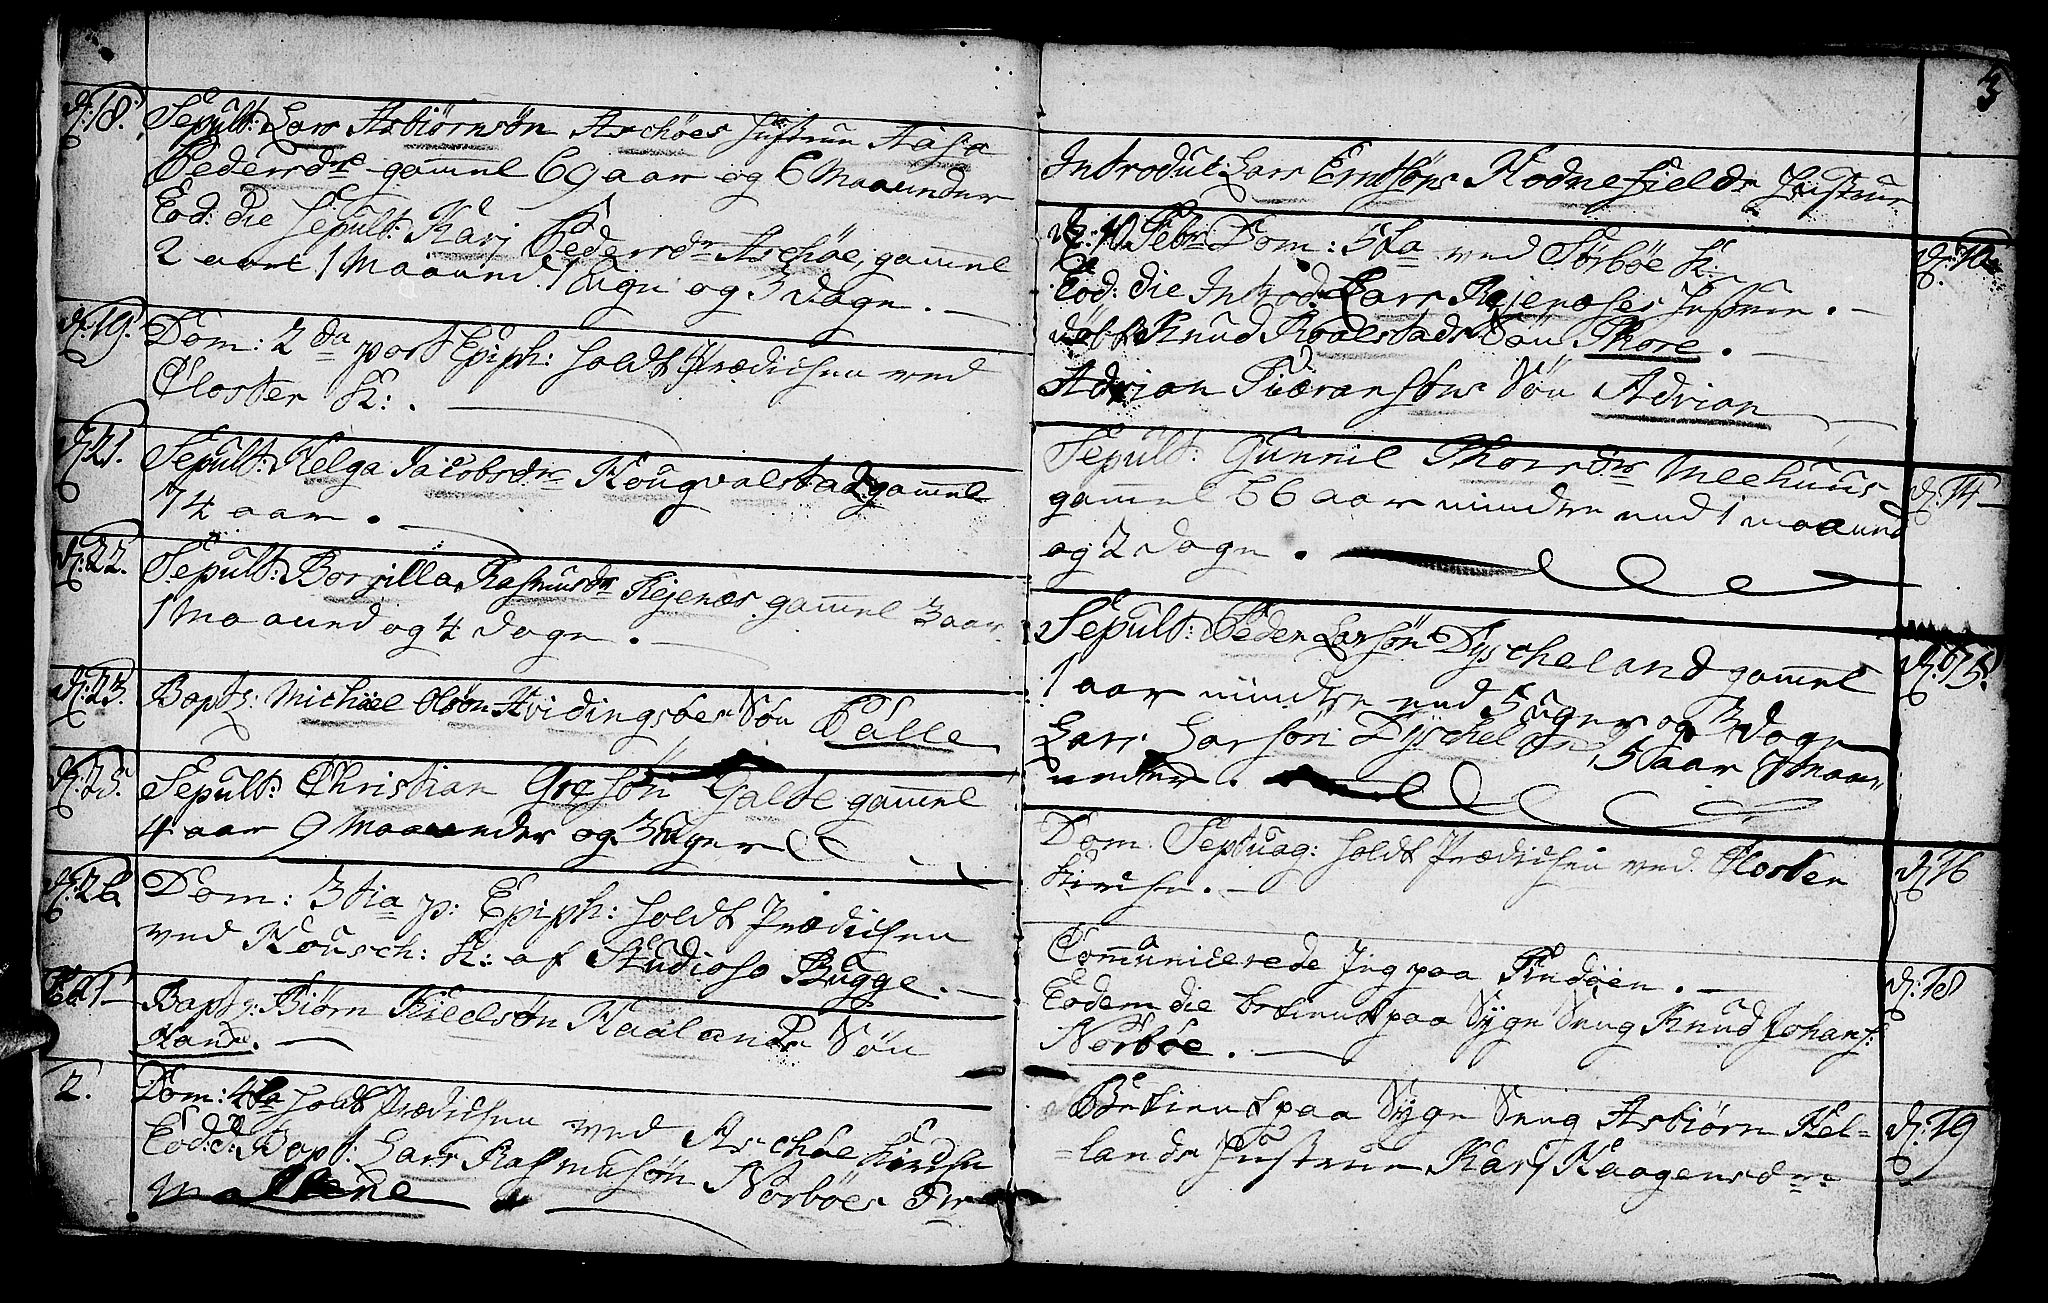 d: 18. Sepult: Lars Asbiörnsön Aschöes Hustrue Aasa
Pedersdr gammel 69 aar og 6 Maaneder
Eod: die Sepult: Karj Pedersdr Aschöe, gammel
2 aar 1 Maaned 1 Uge og 3 dage.
d: 19. Dom: 2da post Epiph: holdt Prædichen ved
Closter K:.
d: 21. Sepult: Helga Jacobsdr Rougvalstad gammel
74 aar.
d: 22. Sepult: Borsilla Rasmusdr Rejenæs gammel 3 aar
1 Maaned og 4 dage.
d: 23. Bapt: Michäel Olsön Hvidingsöes Sön Palle
d: 25. Sepult: Christian Gresön Galte gammel
4 aar 9 Maaneder og 3 Uger
d: 26. Dom: 3tia p: Epiph: holdt Prædichen
ved Housch: K: af Studioso Bugge.
Bapt: Biörn Kieldsön Haalands Sön
2. Dom: 4ta holdt Prædichen ved Aschöe Kirche
Eod: d: Bapt: Lars Rasmusön Nörböes
Mallene
3
Introduc: Lars Erichsöns Hodnefields Hustrue
d: 10 Febr Dom: 5ta ved Sörböe K: d. 10
Eod: die Introd: Lars Rejenæses Hustrue.
döbt Knud Roalstads Sön Thore.
Adrian Sön Adrian
Sepult: Gunnil Thorsdr Meehuus d. 14
gammel 66 aar mindre end 1 maaned
og 2 dage.
Sepult: Peder Larsön Dyscheland gammel d. 15.
1 aar mindre end 5 uger og 3 dage
Lars Larsön Dyscheland, 5 aar 7 Maa-
neder.
Dom. Septuag: holdt Prædichen ved Closter d. 16
Kirche.
Communicerede Jeg paa Findöen. d: 18
Eodem die betient paa Syge Seng Knud Johans:
Norböe.
Betient paa Syge Seng Asbiörn Hel- d: 19
-lands Hustrue Karj Haagensdr: